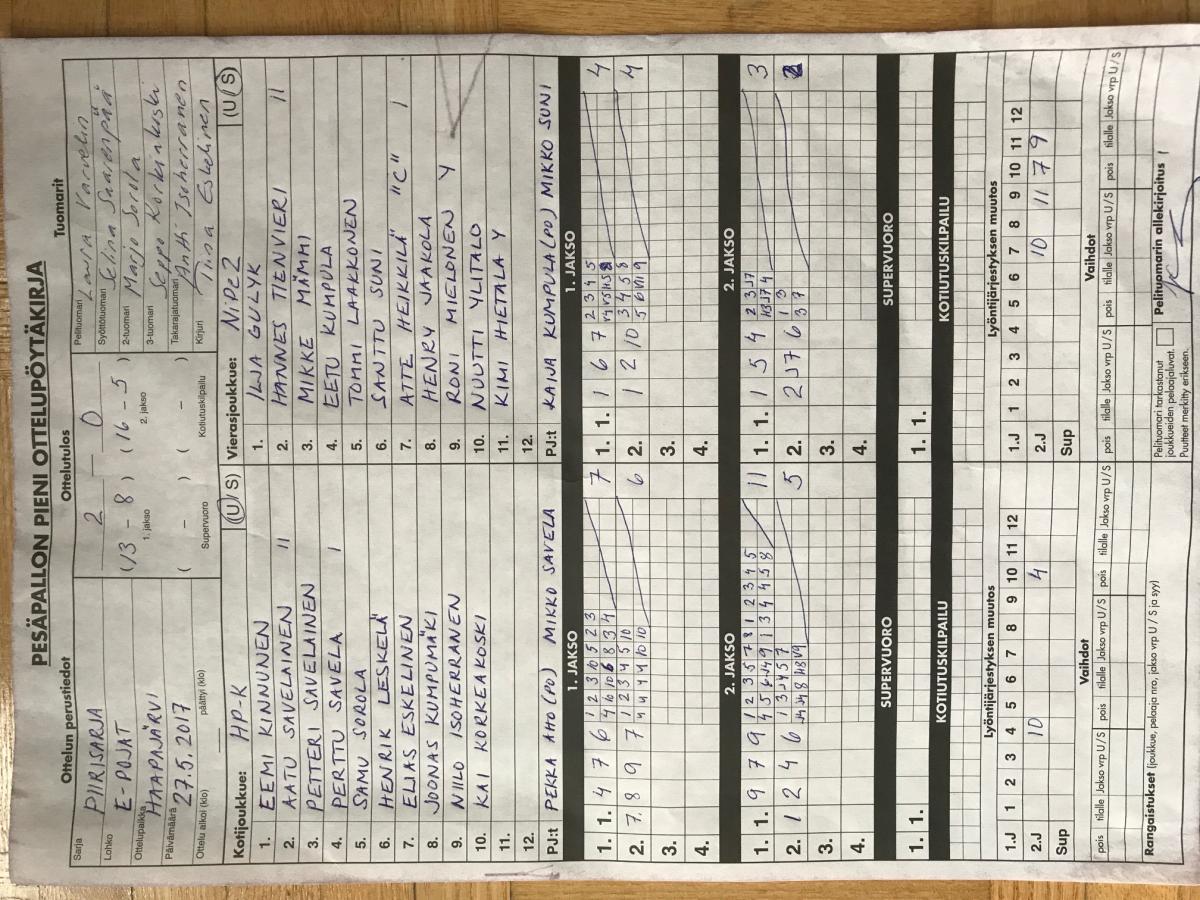 PESÄPALLON PIENI OTTELUPÖYTÄKIRJA
Ottelun perustiedot
Sarja PIIRISARJA
Lohko E-POJAT
Ottelupaikka HAAPAJÄRVI
Päivämäärä 27.5.2017
Ottelu alkoi (klo) päättyi (klo)
Ottelutulos
2 – 0
(13 – 8) (16 – 5)
1. jakso 2. jakso
( – ) ( – )
Supervuoro Kotiutuskilpailu
Tuomarit
Pelituomari Laura
Syöttötuomari Selina Saarenpää
2-tuomari Marjo Sorola
3-tuomari Seppo Korkiakoski
Takarajatuomari Antti Isoherranen
Kirjuri Tiina Eskelinen
Kotijoukkue: HP-K (U/S)
1. EEMI KINNUNEN
2. AATU SAVELAINEN II
3. PETTERI SAVELAINEN
4. PERTTU SAVELA I
5. SAMU SOROLA
6. HENRIK LESKELÄ
7. ELIAS ESKELINEN
8. JOONAS KUMPUMÄKI
9. NIILO ISOHERRANEN
10. KAI KORKEAKOSKI
11.
12.
PJ:t PEKKA AHO (PO) MIKKO SAVELA
Vierasjoukkue: NiPe2 (U/S)
1. ILJA GULYK
2. HANNES TIENVIERI II
3. MIKKE MÄMMI
4. EETU KUMPULA
5. TOMMI LAAKKONEN
6. SANTTU SUNI
7. ATTE HEIKKILÄ "C" I
8. HENRY JAAKOLA
9. RONI MIELONEN Y
10. NUUTTI YLITALO
11. KIMI HIETALA Y
12.
PJ:t KAIJA KUMPULA (PO) MIKKO SUNI
1. JAKSO
1. 1. 4 7 6 7
2. 7. 8 9 7 6
3.
4.
1. JAKSO
1. 1. 1 6 7 4
2. 1 2 10 4
3.
4.
2. JAKSO
1. 1. 9 7 9 11
2. 1 2 4 6 5
3.
4.
2. JAKSO
1. 1. 1 5 4 3
2. 2 J7 6 2
3.
4.
SUPERVUORO
1. 1.
SUPERVUORO
1. 1.
KOTIUTUSKILPAILU
KOTIUTUSKILPAILU
Lyöntijärjestyksen muutos
1.J 1 2 3 4 5 6 7 8 9 10 11 12
2.J 10 4
Sup
Lyöntijärjestyksen muutos
1.J 1 2 3 4 5 6 7 8 9 10 11 12
2.J 10 11 7 9
Sup
Vaihdot
pois tilalle Jakso vrp U/S pois tilalle Jakso vrp U/S pois tilalle Jakso vrp U/S pois tilalle Jakso vrp U/S
Vaihdot
pois tilalle Jakso vrp U/S pois tilalle Jakso vrp U/S pois tilalle Jakso vrp U/S pois tilalle Jakso vrp U/S
Rangaistukset (joukkue, pelaaja nro, jakso vrp U / S ja syy)
Pelituomari tarkastanut
joukkueiden pelaajaluvat.
Puutteet merkitty erikseen.
Pelituomarin allekirjoitus